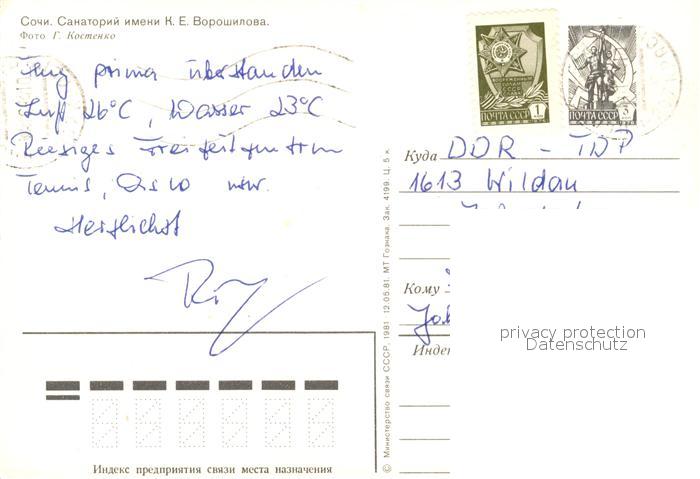 Сочи. Санаторий имени К. Е. Ворошилова.
Фото Г. Костенко
Flug prima überstanden
Luft 26°C, Wasser 23°C
Riesiges Freizeitzentrum
Tennis, Disco usw.
Herzlichst
ПОЧТА СССР 1
ПОЧТА СССР 3
Куда DDR - ГДР
1613 Wildau
Кому
Индек
© Министерство связи СССР, 1981 12.05.81. МТ Гознака. Зак. 4199. Ц. 5 к.
Индекс предприятия связи места назначения
privacy protection
Datenschutz